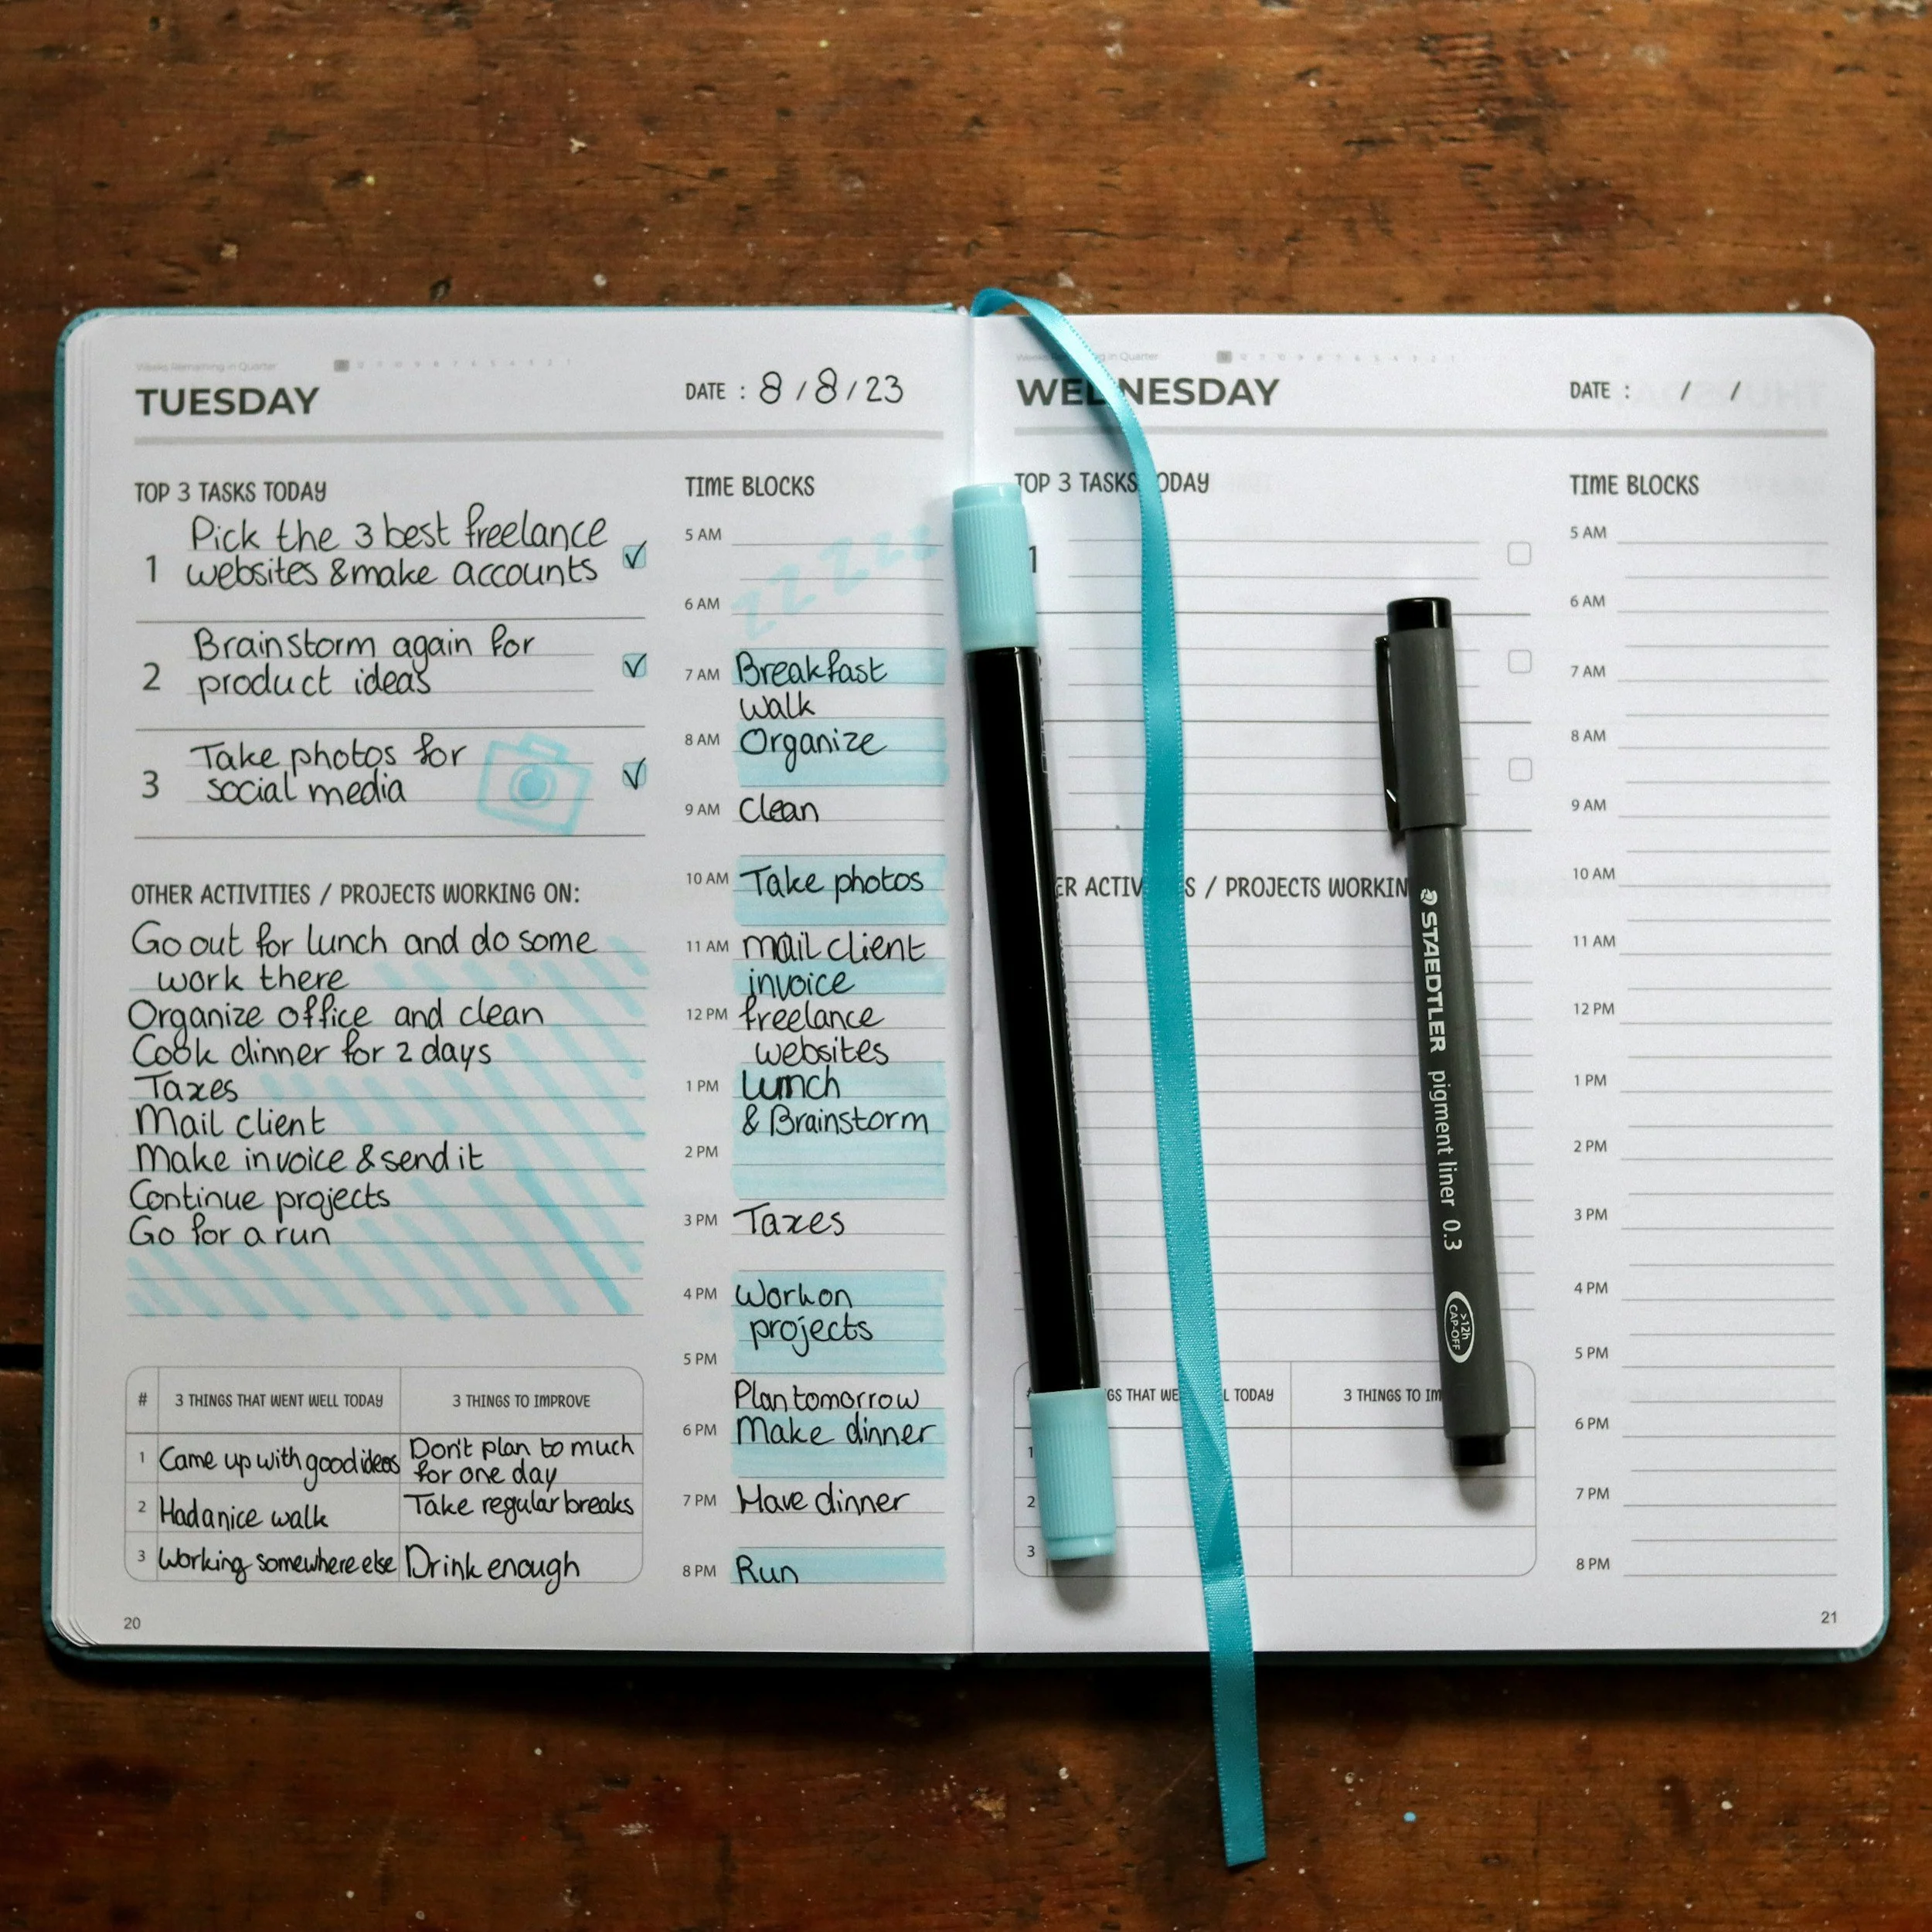 Weeks Remaining in Quarter
TUESDAY
DATE : 8 / 8 / 23
TOP 3 TASKS TODAY
1 Pick the 3 best freelance
websites & make accounts
2 Brainstorm again for
product ideas
3 Take photos for
social media
OTHER ACTIVITIES / PROJECTS WORKING ON:
Go out for lunch and do some
work there
Organize office and clean
Cook dinner for 2 days
Taxes
Mail client
Make invoice & send it
Continue projects
Go for a run
# 3 THINGS THAT WENT WELL TODAY 3 THINGS TO IMPROVE
1 Came up with good ideas Don't plan to much
for one day
2 Had a nice walk Take regular breaks
3 Working somewhere else Drink enough
20
TIME BLOCKS
5 AM
zzzzzz
6 AM
7 AM Breakfast
walk
8 AM Organize
9 AM Clean
10 AM Take photos
11 AM mail client
invoice
12 PM freelance
websites
1 PM Lunch
& Brainstorm
2 PM
3 PM Taxes
4 PM Work on
projects
5 PM
Plan tomorrow
6 PM Make dinner
7 PM Have dinner
8 PM Run
in Quarter
WEDNESDAY
DATE : / /
TOP 3 TASKS TODAY
1
ER ACTIV S / PROJECTS WORKIN
GS THAT WE L TODAY 3 THINGS TO IM
1
2
3
TIME BLOCKS
5 AM
6 AM
7 AM
8 AM
9 AM
10 AM
11 AM
12 PM
1 PM
2 PM
3 PM
4 PM
5 PM
6 PM
7 PM
8 PM
21
STAEDTLER pigment liner 0.3
>12h
CAP-OFF